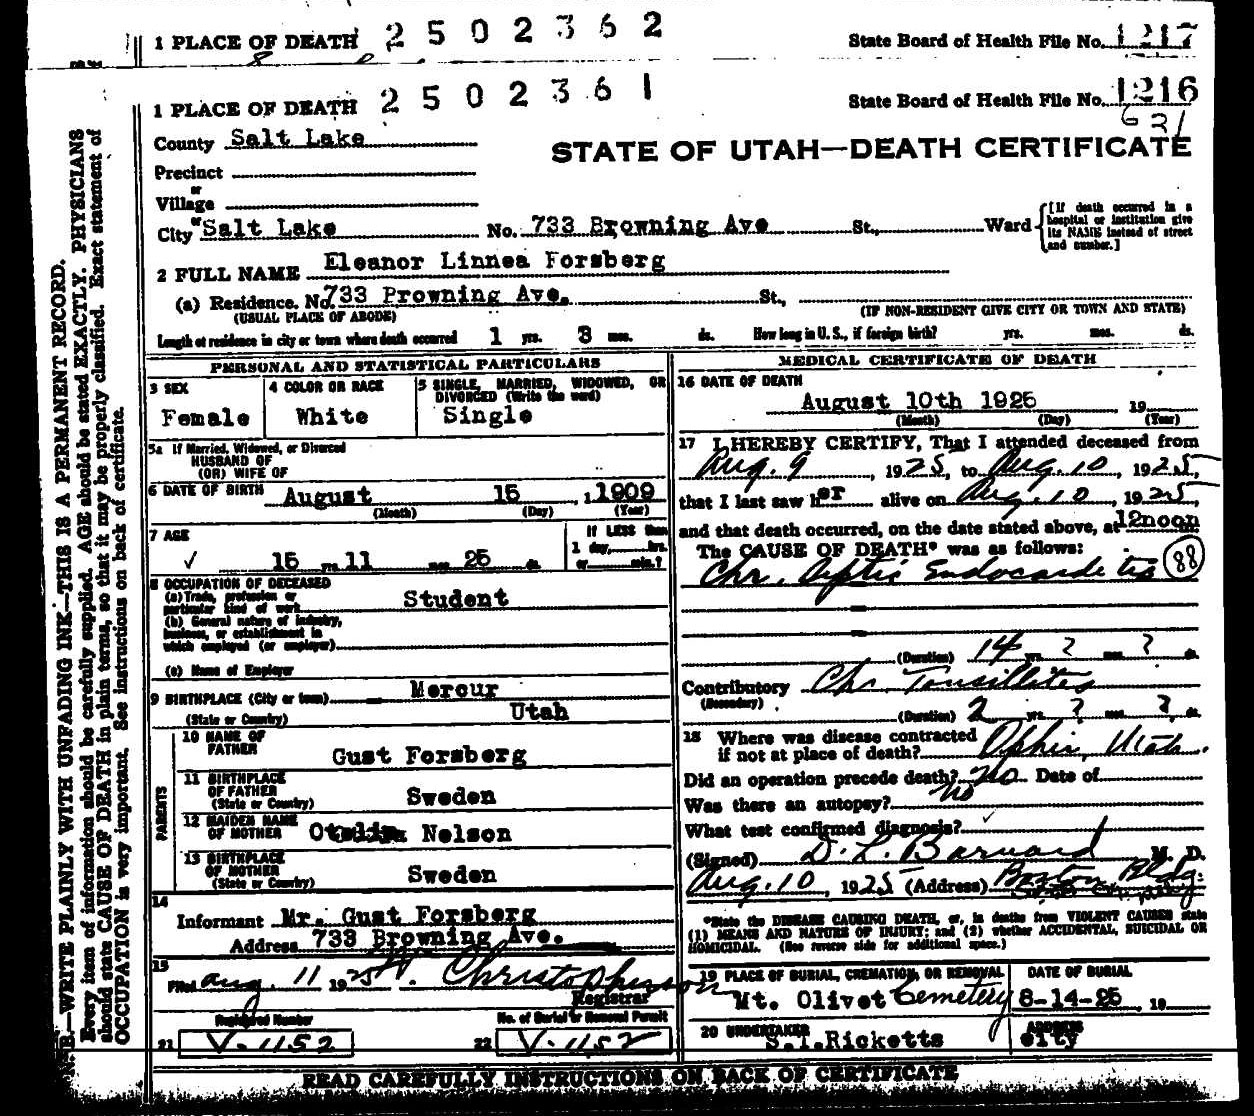 1 PLACE OF DEATH 2502362 State Board of Health File No. 1217
1 PLACE OF DEATH 2502361 State Board of Health File No. 1216
631
County Salt Lake
STATE OF UTAH—DEATH CERTIFICATE
Precinct
or
Village
or
City Salt Lake No. 733 Browning Ave St., Ward [If death occurred in a hospital or institution give its NAME instead of street and number.]
2 FULL NAME Eleanor Linnea Forsberg
(a) Residence. No. 733 Browning Ave. St.,
(USUAL PLACE OF ABODE) (IF NON-RESIDENT GIVE CITY OR TOWN AND STATE)
Length of residence in city or town where death occurred 1 yrs. 3 mos. ds. How long in U. S., if foreign birth? yrs. mos. ds.
PERSONAL AND STATISTICAL PARTICULARS
3 SEX
Female
4 COLOR OR RACE
White
5 SINGLE, MARRIED, WIDOWED, OR
DIVORCED (Write the word)
Single
5a If Married, Widowed, or Divorced
HUSBAND OF
(OR) WIFE OF
6 DATE OF BIRTH August 15, 1909
(Month) (Day) (Year)
7 AGE
15 yrs 11 mos 25 ds.
If LESS than
1 day,......hrs.
or......min.?
8 OCCUPATION OF DECEASED
(a) Trade, profession or
particular kind of work Student
(b) General nature of industry,
business, or establishment in
which employed (or employer)
(c) Name of Employer
9 BIRTHPLACE (City or town) Mercur
(State or Country) Utah
PARENTS
10 NAME OF
FATHER Gust Forsberg
11 BIRTHPLACE
OF FATHER
(State or Country) Sweden
12 MAIDEN NAME
OF MOTHER Nelson
13 BIRTHPLACE
OF MOTHER
(State or Country) Sweden
14
Informant Mr. Gust Forsberg
Address 733 Browning Ave.
15
Filed Aug. 11 1925 Christopherson
Registrar
Registered Number
21 V-1152
No. of Burial or Removal Permit
22 V-1152
MEDICAL CERTIFICATE OF DEATH
16 DATE OF DEATH
August 10th 1925, 19
(Month) (Day) (Year)
17 I HEREBY CERTIFY, That I attended deceased from
Aug. 9, 1925, to Aug. 10, 1925,
that I last saw her alive on Aug. 10, 1925
and that death occurred, on the date stated above, at 12noon m.
The CAUSE OF DEATH* was as follows:
Chr. Endocarditis 88
(Duration) 14 yrs. ? mos. ? ds.
Contributory Chr. Tonsillitis
(Secondary)
(Duration) 2 yrs. ? mos. ? ds.
18 Where was disease contracted
if not at place of death? Ophir, Utah.
Did an operation precede death? No Date of
Was there an autopsy? No
What test confirmed diagnosis?
(Signed) D. L. Barnard M. D.
Aug. 10, 1925 (Address) Boston Bldg.
*State the DISEASE CAUSING DEATH, or, in deaths from VIOLENT CAUSES state
(1) MEANS AND NATURE OF INJURY; and (2) whether ACCIDENTAL, SUICIDAL OR
HOMICIDAL. (See reverse side for additional space.)
19 PLACE OF BURIAL, CREMATION, OR REMOVAL
Mt. Olivet Cemetery
DATE OF BURIAL
8-14-25, 19
20 UNDERTAKER
S.T.Ricketts
ADDRESS
City
READ CAREFULLY INSTRUCTIONS ON BACK OF CERTIFICATE
N. B.—WRITE PLAINLY WITH UNFADING INK—THIS IS A PERMANENT RECORD.
Every item of information should be carefully supplied. AGE should be stated EXACTLY. PHYSICIANS
should state CAUSE OF DEATH in plain terms, so that it may be properly classified. Exact statement of
OCCUPATION is very important. See instructions on back of certificate.